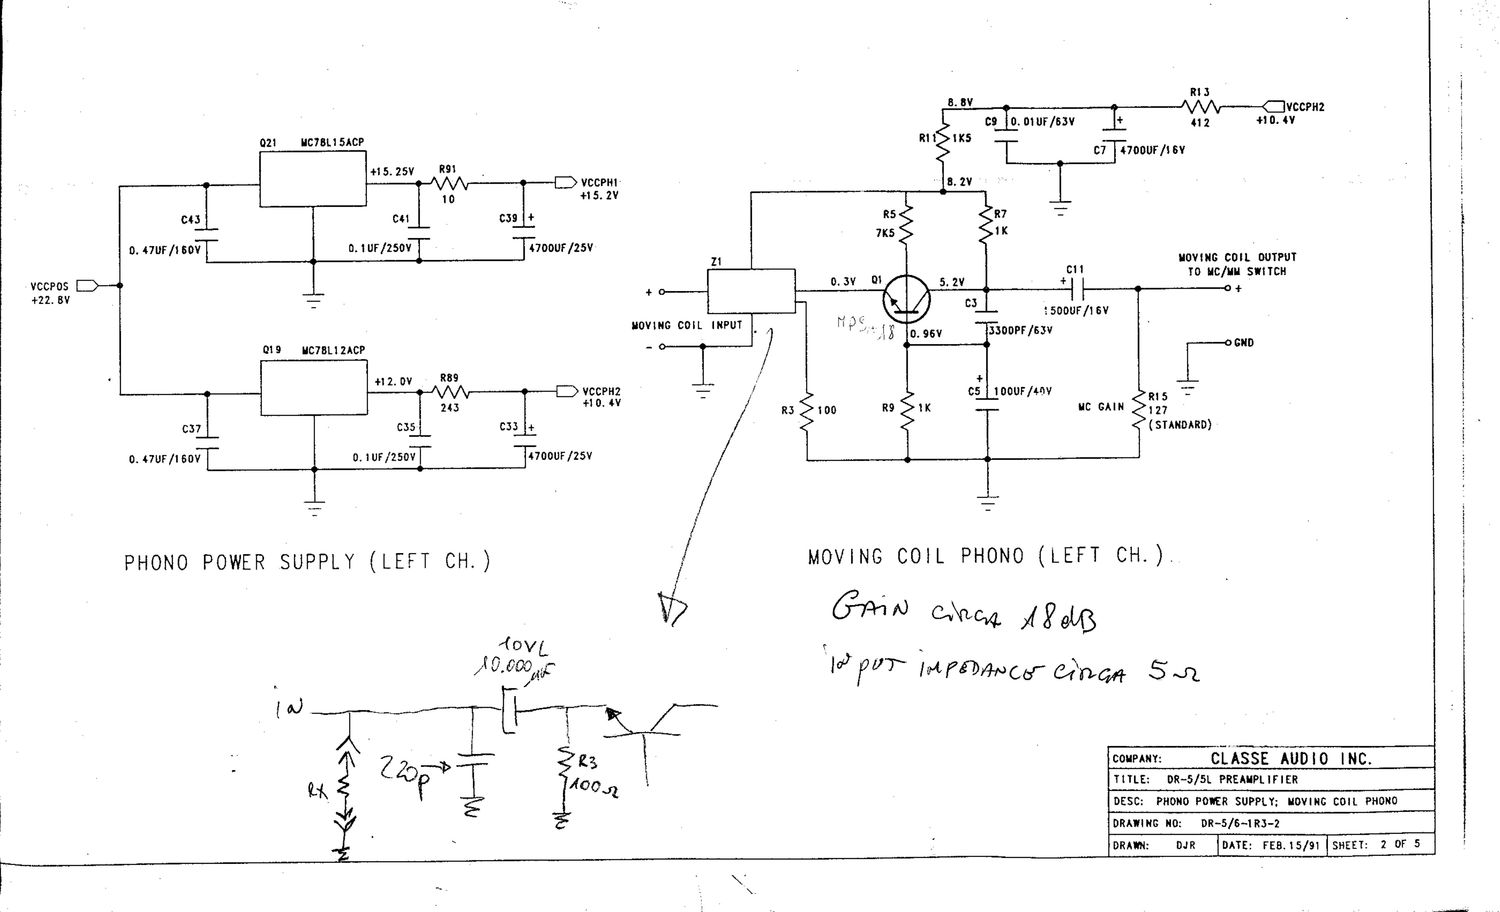 Q21 MC78L15ACP
+15.25V
R91
10
VCCPH1
+15.2V
C43
0.47UF/160V
C41
0.1UF/250V
C39 +
4700UF/25V
VCCPOS
+22.8V
Q19 MC78L12ACP
+12.0V
R89
243
VCCPH2
+10.4V
C37
0.47UF/160V
C35
0.1UF/250V
C33 +
4700UF/25V
PHONO POWER SUPPLY (LEFT CH.)
8.8V
R13
412
VCCPH2
+10.4V
C9 0.01UF/63V
+
C7 4700UF/16V
R11 1K5
8.2V
R5
7K5
R7
1K
Z1
+
MOVING COIL INPUT
-
0.3V
Q1
5.2V
C11
+
1500UF/16V
MOVING COIL OUTPUT
TO MC/MM SWITCH
+
C3
3300PF/63V
0.96V
GND
R3 100
R9 1K
+
C5 100UF/40V
MC GAIN
R15
127
(STANDARD)
MOVING COIL PHONO (LEFT CH.)
GAIN CIRCA 18dB
INPUT IMPEDANCE CIRCA 5Ω
10VL
10.000µF
IN
220p
RX
R3
100Ω
COMPANY: CLASSE AUDIO INC.
TITLE: DR-5/5L PREAMPLIFIER
DESC: PHONO POWER SUPPLY; MOVING COIL PHONO
DRAWING NO: DR-5/6-1R3-2
DRAWN: DJR DATE: FEB.15/91 SHEET: 2 OF 5